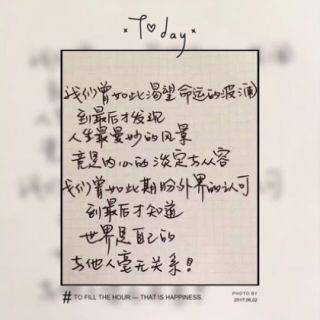 Today
我们曾如此渴望命运的波澜
到最后才发现
人生最曼妙的风景
竟是内心的淡定与从容
我们曾如此期盼外界的认可
到最后才知道
世界是自己的
与他人毫无关系！
# TO FILL THE HOUR — THAT IS HAPPINESS.
PHOTO BY
2017.08.02